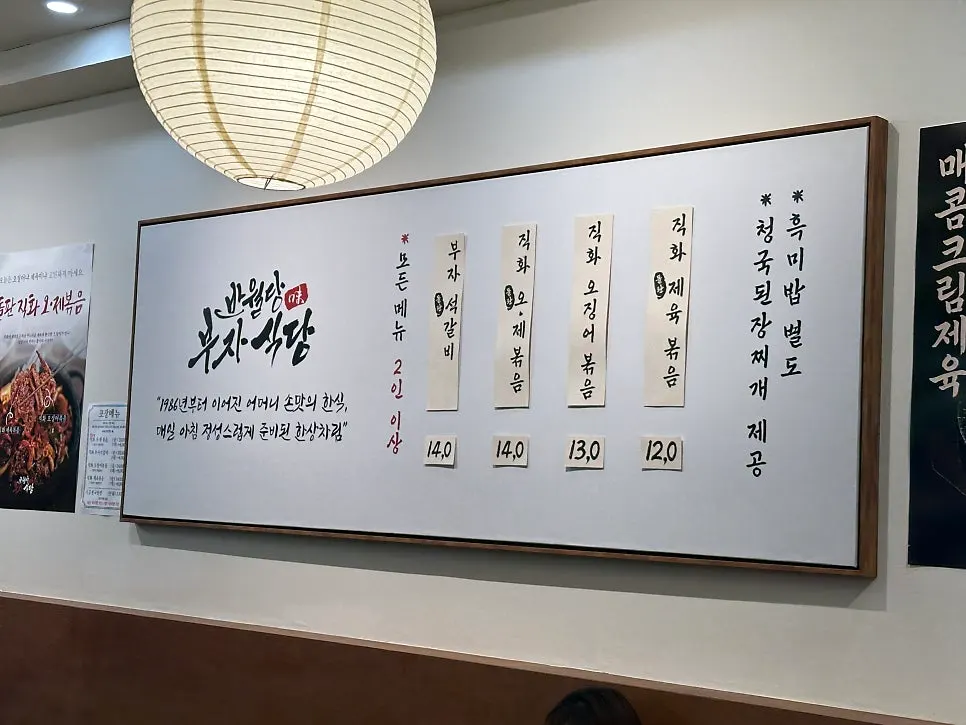 반월당 味
부자식당
"1986년부터 이어진 어머니 손맛의 한식,
매일 아침 정성스럽게 준비된 한상차림"
* 모든 메뉴 2인 이상
부자 석갈비
14,0
직화 오,제볶음
14,0
직화 오징어볶음
13,0
직화 제육볶음
12,0
* 청국된장찌개 제공
* 흑미밥 별도
매콤크림제육
직화 오·제볶음
포장메뉴